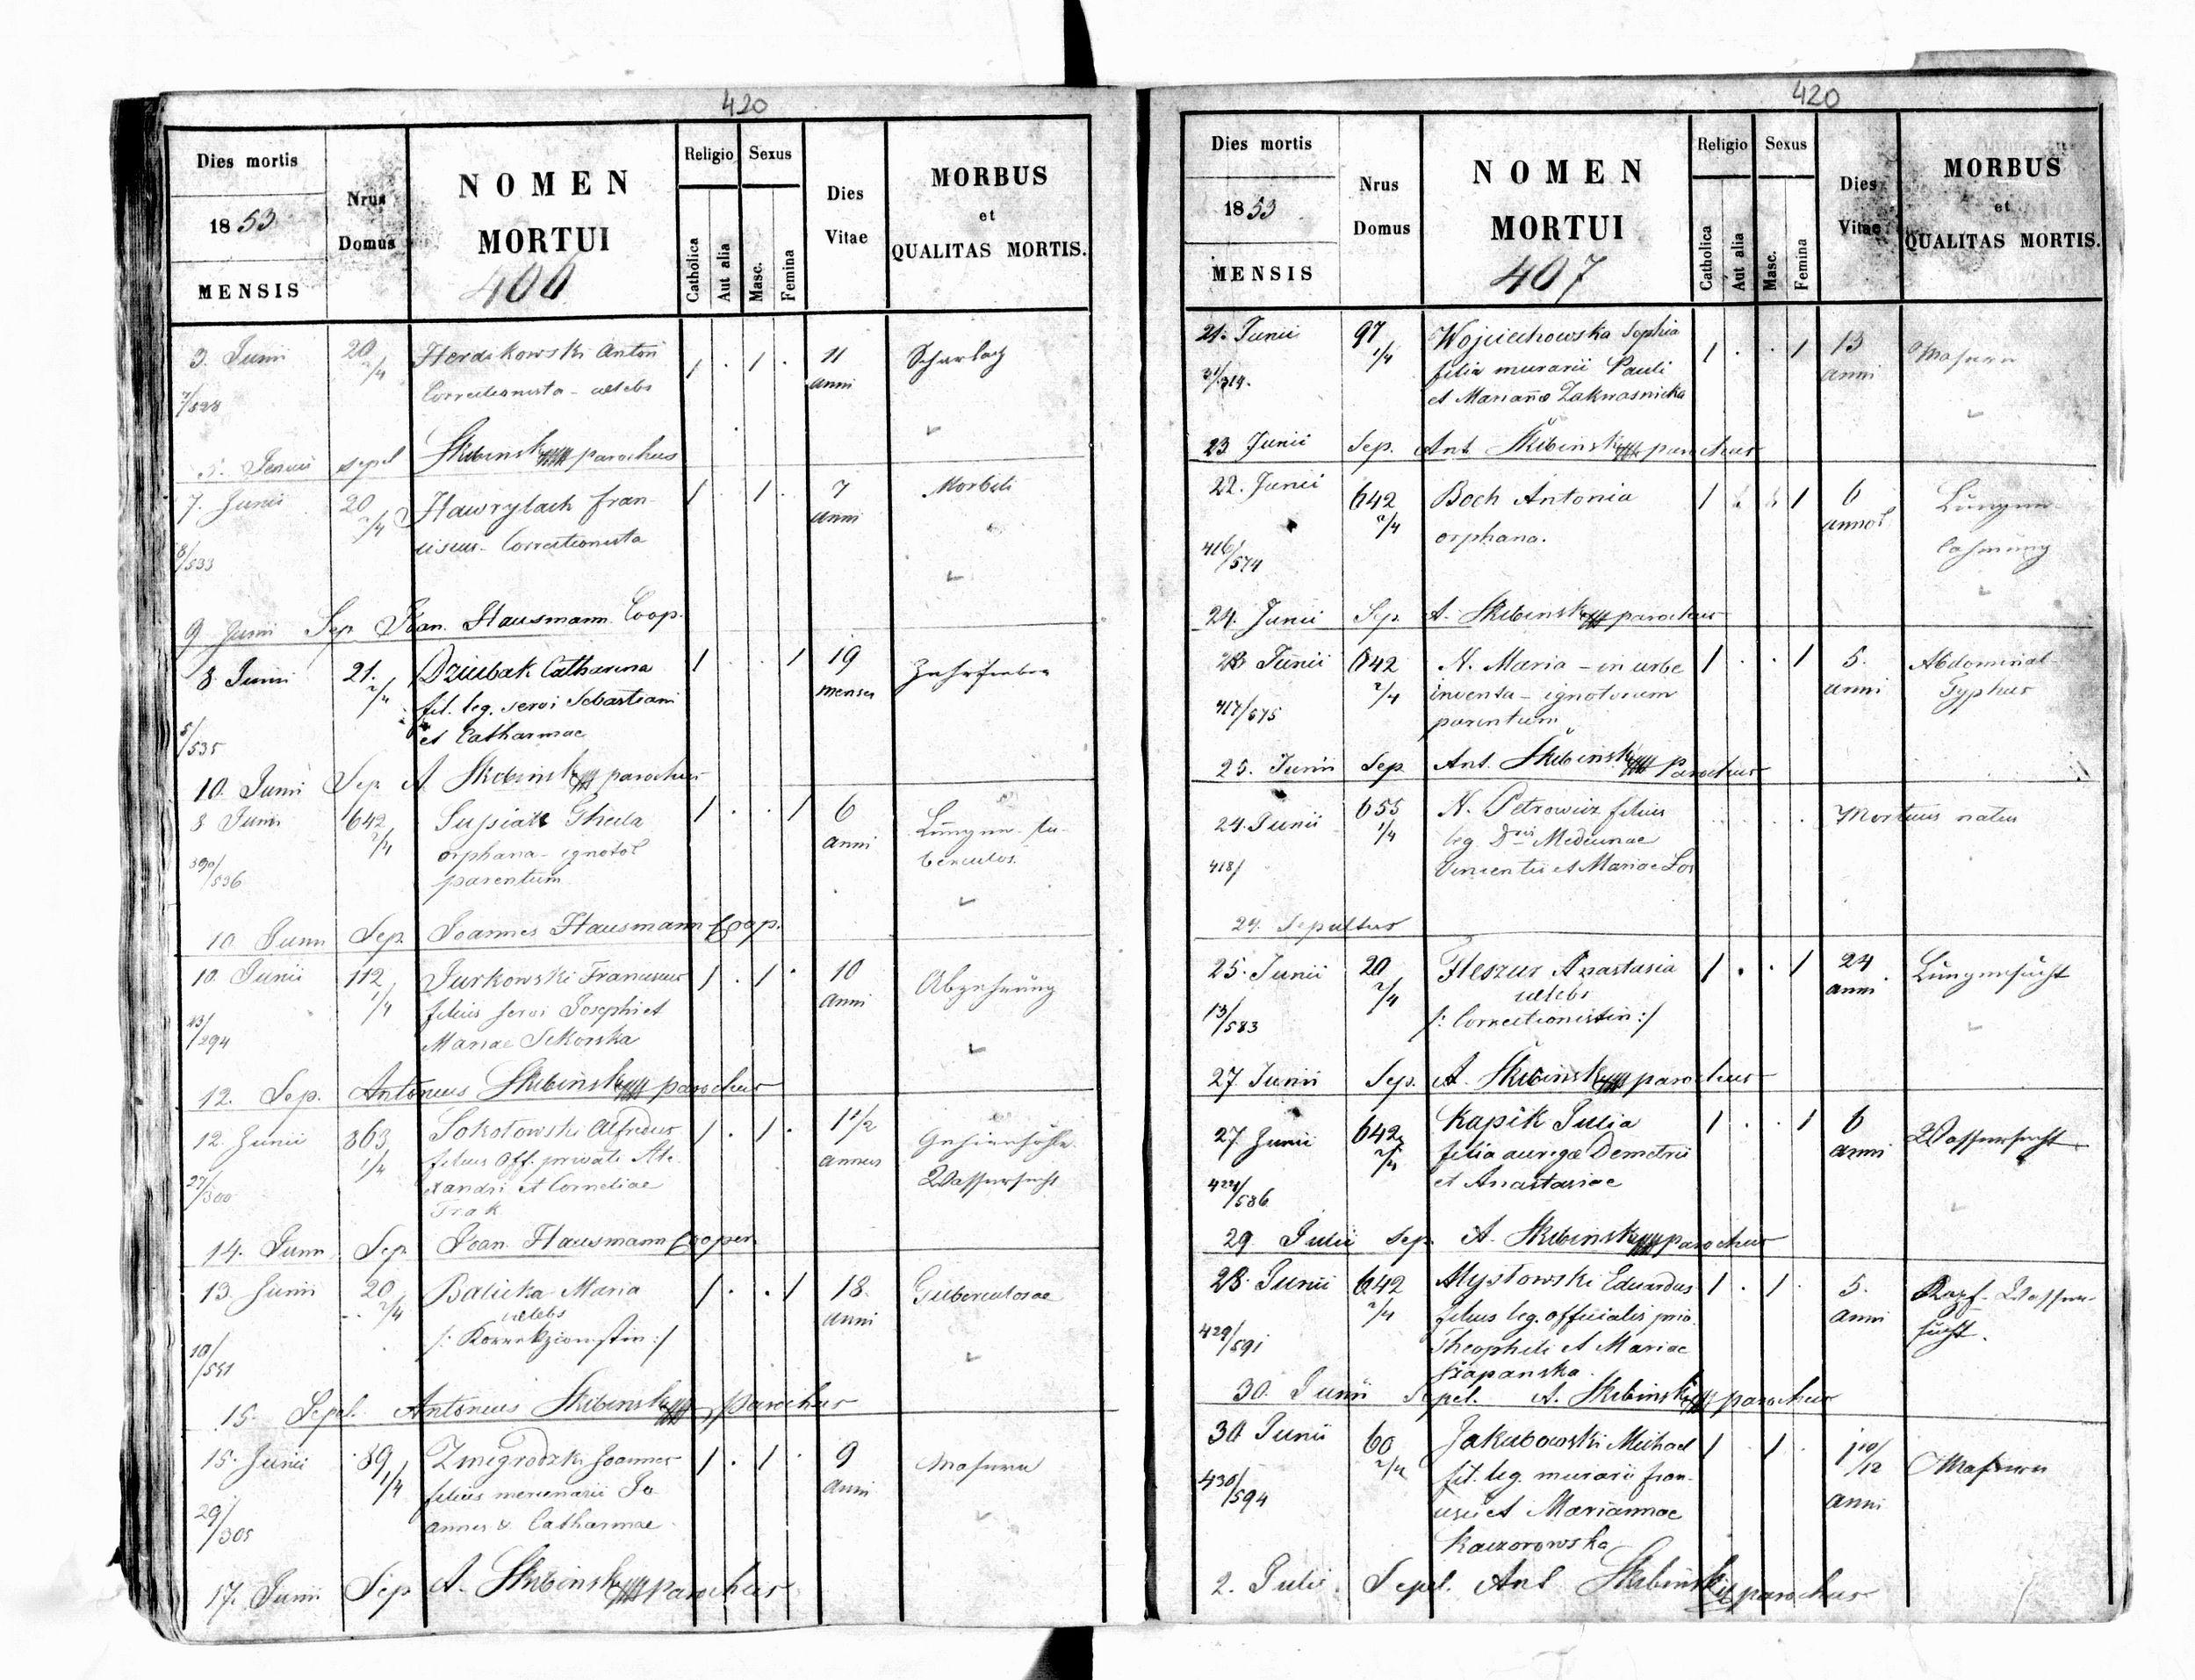 420
Dies mortis
1853
MENSIS
Nrus
Domus
NOMEN
MORTUI
406
Religio
Catholica
Aut alia
Sexus
Masc.
Femina
Dies
Vitae
MORBUS
et
QUALITAS MORTIS.
3. Junii 20 Anton 1 . 1 . 11 Scharlach
2/4 Correctionista - caelebs anni
7/528
5. Junii sepel Skibinski parochus
7. Junii 20 Hawrylach Fran- 1 . 1 . 7 Morbili
2/4 ciscus - Correctionista anni
8/533
9 Junii Sep Joan. Hausmann Coop.
8 Junii 21. Dziubak Catharina 1 . . 1 19 Zehrfieber
2/4 fil. leg. servi Sebastiani menses
et Catharinae
5/535
10. Junii Sep A. Skibinski parochus
8 Junii 642 Thecla 1 . . 1 6 Lungen-tu-
2/4 orphana - ignotor anni berculos.
parentum
390/536
10. Junii Sep. Joannes Hausmann Coop.
10. Junii 112 Jurkowski Franciscus 1 . 1 . 10 Abzehrung
1/4 filius servi Josephi et anni
Mariae Sikorska
13/294
12. Sep. Antonius Skibinski parochus
12. Junii 363 Sokołowski Alfredus 1 . 1 . 1 1/2 Gehirnhöhle
1/4 filius off. privati Ale- annus Wassersucht
xandri et Corneliae
27/300
14. Junii Sep Joan. Hausmann Cooper
13. Junii 20 Balicka Maria 1 . . 1 18 Tuberculosae
2/4 caelebs anni
/: Korrekzionistin :/
10/551
15. Sepel. Antonius Skibinski parochus
15. Junii 89 Zmigrodzki Joannes 1 . 1 . 9 Masern
1/4 filius mercenarii Jo anni
annes & Catharinae
29/305
17. Junii Sep A. Skibinski parochus
420
Dies mortis
1853
MENSIS
Nrus
Domus
NOMEN
MORTUI
407
Religio
Catholica
Aut alia
Sexus
Masc.
Femina
Dies
Vitae
MORBUS
et
QUALITAS MORTIS.
21. Junii 97 Wojciechowska Sophia 1 . . 1 13 Masern
1/4 filia murarii Pauli anni
31/314. et Marianae Zakwasnicka
23 Junii Sep. Ant Skibinski parochus
22. Junii 642 Boch Antonia 1 1 6 Lungen-
2/4 orphana. annor lähmung
416/574
24. Junii Sep. A. Skibinski parochus
23. Junii 642 N. Maria - in urbe 1 . . 1 5. Abdominal
2/4 inventa - ignotorum anni Typhus
417/575 parentum
25. Junii Sep. Ant. Skibinski Parochus
24. Junii 655 N. Petrowicz filius Mortuus natus
1/4 leg Dris Medicinae
418/ Vincentii et Mariae Los
27. Sepultus
25. Junii 20 Anastasia 1 . . 1 24 Lungensucht
2/4 caelebs anni
13/583 /: Correctionistin :/
27. Junii Sep. A. Skibinski parochus
27. Junii 642 Kapik Julia 1 . . 1 6 Wassersucht
2/4 filia aurigae Demetrii anni
et Anastasiae
/586
29. Julii Sep. A. Skibinski parochus
28. Junii 642 Mysłowski Eduardus 1 . 1 . 5. Kopf-Wasser-
2/4 filius leg. officialis priv. anni sucht.
429/591 Theophili et Mariae
30. Junii Sepel. A. Skibinski parochus
30 Junii 60 Jakubowski Michael 1 . 1 . 1 10/12 Masern
2/4 fil. leg. murarii Fran- anni
430/594 cisci et Mariannae
Kaczorowska
2. Julii Sepel. Ant Skibinski parochus